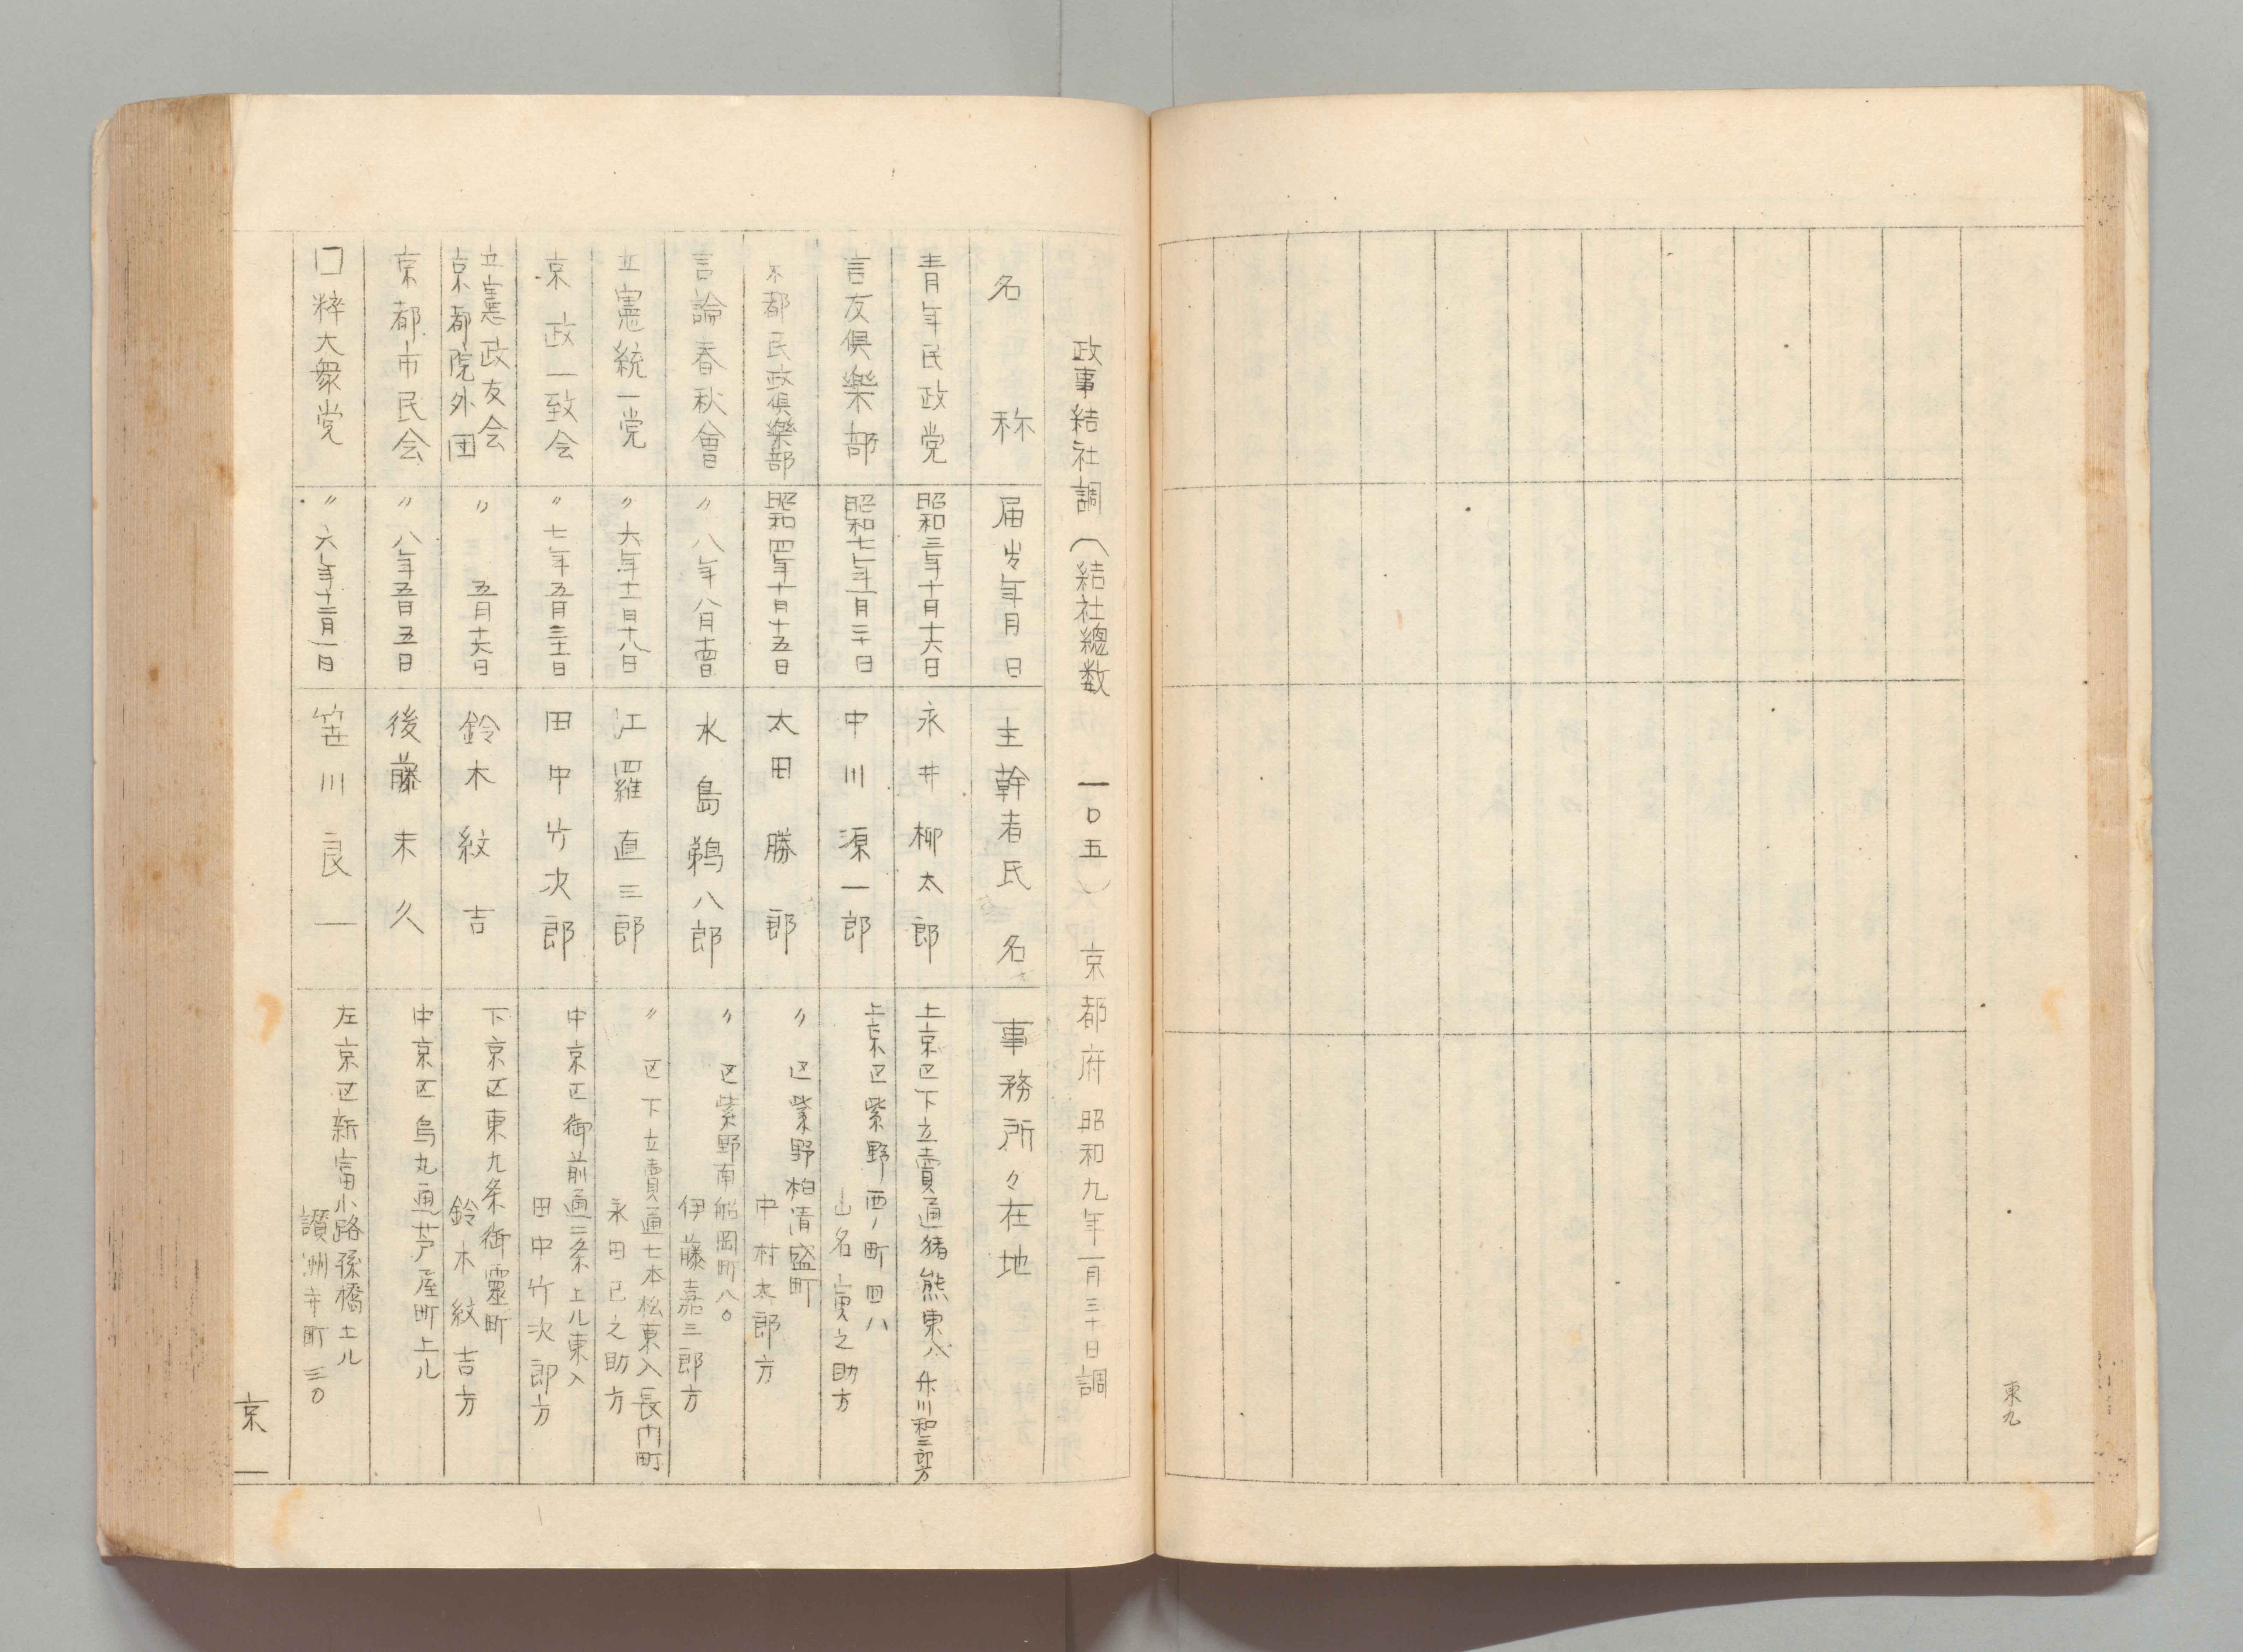 東九
政事結社調(結社總数 一〇五) 京都府 昭和九年一月三十日調
名称 届出年月日 主幹者氏名 事務所々在地
青年民政党 昭和三年十月十六日 永井柳太郎 上京区下立賣通猪熊東入 川和三郎方
言友倶樂部 昭和七年一月二十日 中川源一郎 上京区紫野西ノ町四八
山名寅之助方
都民政倶樂部 昭和四年十月十五日 太田勝郎 〃区紫野柏清盛町
中村太郎方
言論春秋會 〃八年八月 日 水島鵜八郎 〃区紫野南船岡町八〇
伊藤嘉三郎方
立憲統一党 〃六年十一月十八日 江羅直三郎 〃区下立賣通七本松東入長門町
永田已之助方
京政一致会 〃七年五月三十一日 田中竹次郎 中京区御前通三条上ル東入
田中竹次郎方
立憲政友会
京都院外団 〃 五月十六日 鈴木紋吉 下京区東九条御靈町
鈴木紋吉方
京都市民会 〃八年五月五日 後藤末久 中京区烏丸通芦屋町上ル
粋大衆党 〃六年十二月一日 笹川良一 左京区新富小路孫橋上ル
讃洲寺町三〇
京一